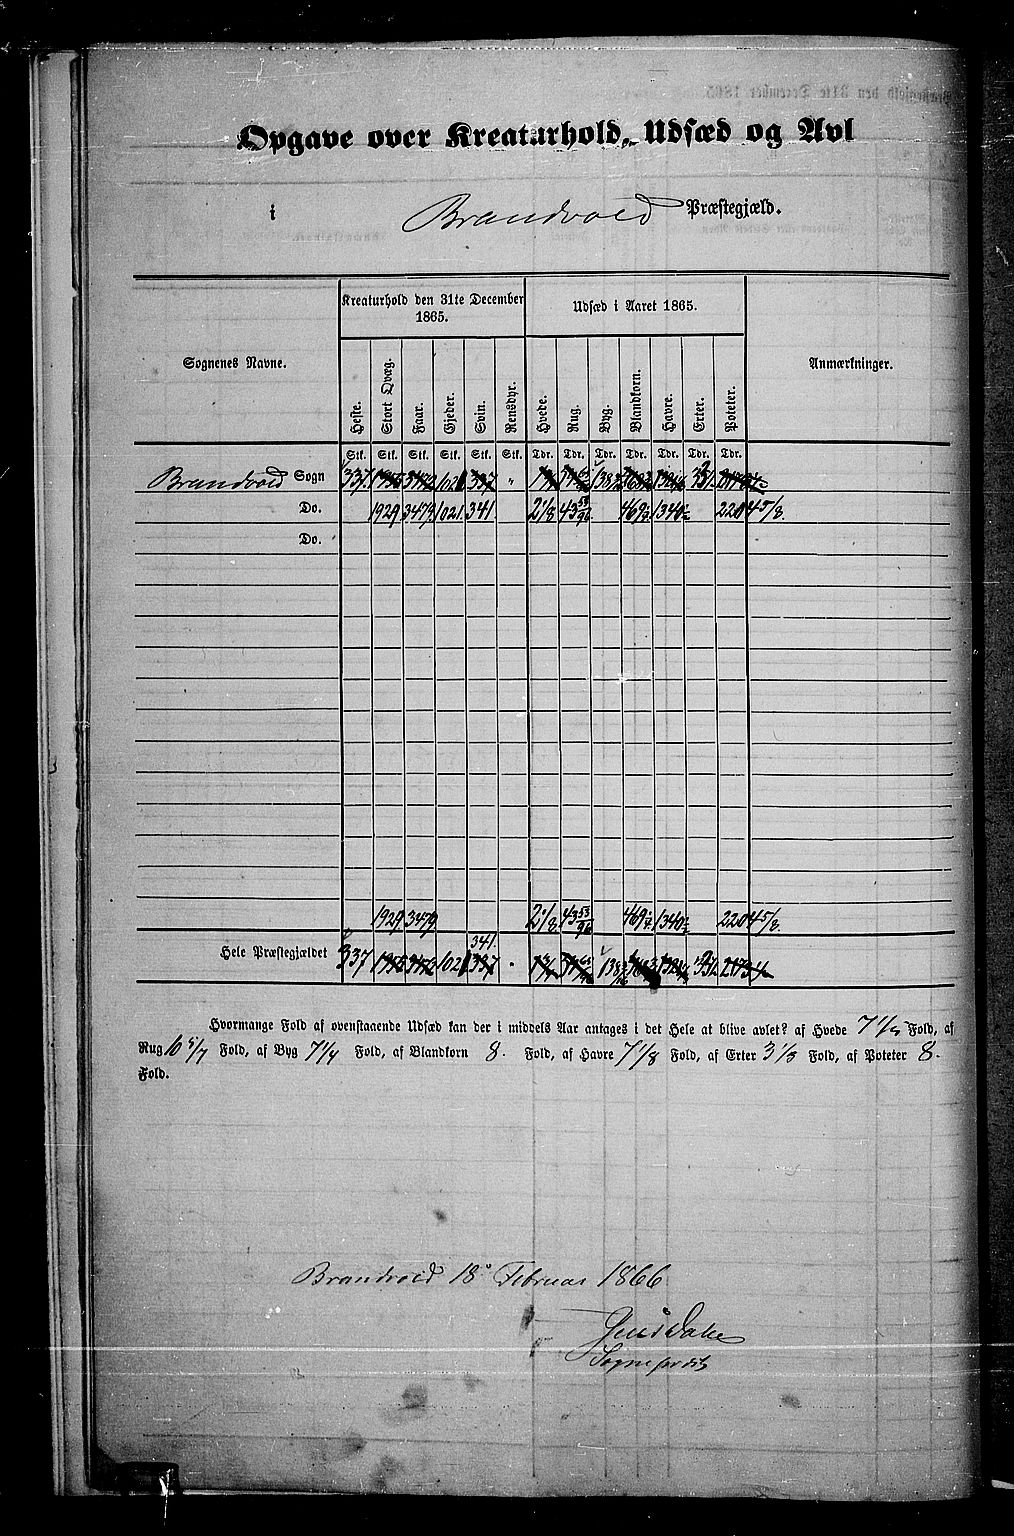 Opgave over Kreaturhold, Udsæd og Avl
i Brandvold Præstegjæld.
Sognenes Navne.
Kreaturhold den 31te December 1865.
Udsæd i Aaret 1865.
Anmærkninger.
Heste. Stort Qvæg. Faar. Gjeder. Svin. Rensdyr. Hvede. Rug. Byg. Blandkorn. Havre. Erter. Poteter.
Stk. Stk. Stk. Stk. Stk. Stk. Tdr. Tdr. Tdr. Tdr. Tdr. Tdr. Tdr.
Brandvold Sogn 337. 1021 337 "
Do. 1929 3479 1021 341 2 1/8 43 53/96 469 1/4 1340 1/2 2204 5/8.
Do.
1929 3479 2 1/8 43 53/96 469 1/4 1340 1/2 2204 5/8.
341.
Hele Præstegjældet 337 1021 337
Hvormange Fold af ovenstaaende Udsæd kan der i middels Aar antages i det Hele at blive avlet? af Hvede 7 Fold, af
Rug 10 5/7 Fold, af Byg 7 1/4 Fold, af Blandkorn 8. Fold, af Havre 7 1/8 Fold, af Erter 3 1/3 Fold, af Poteter 8.
Fold.
Brandvold 18 Februar 1866
Sognepræst